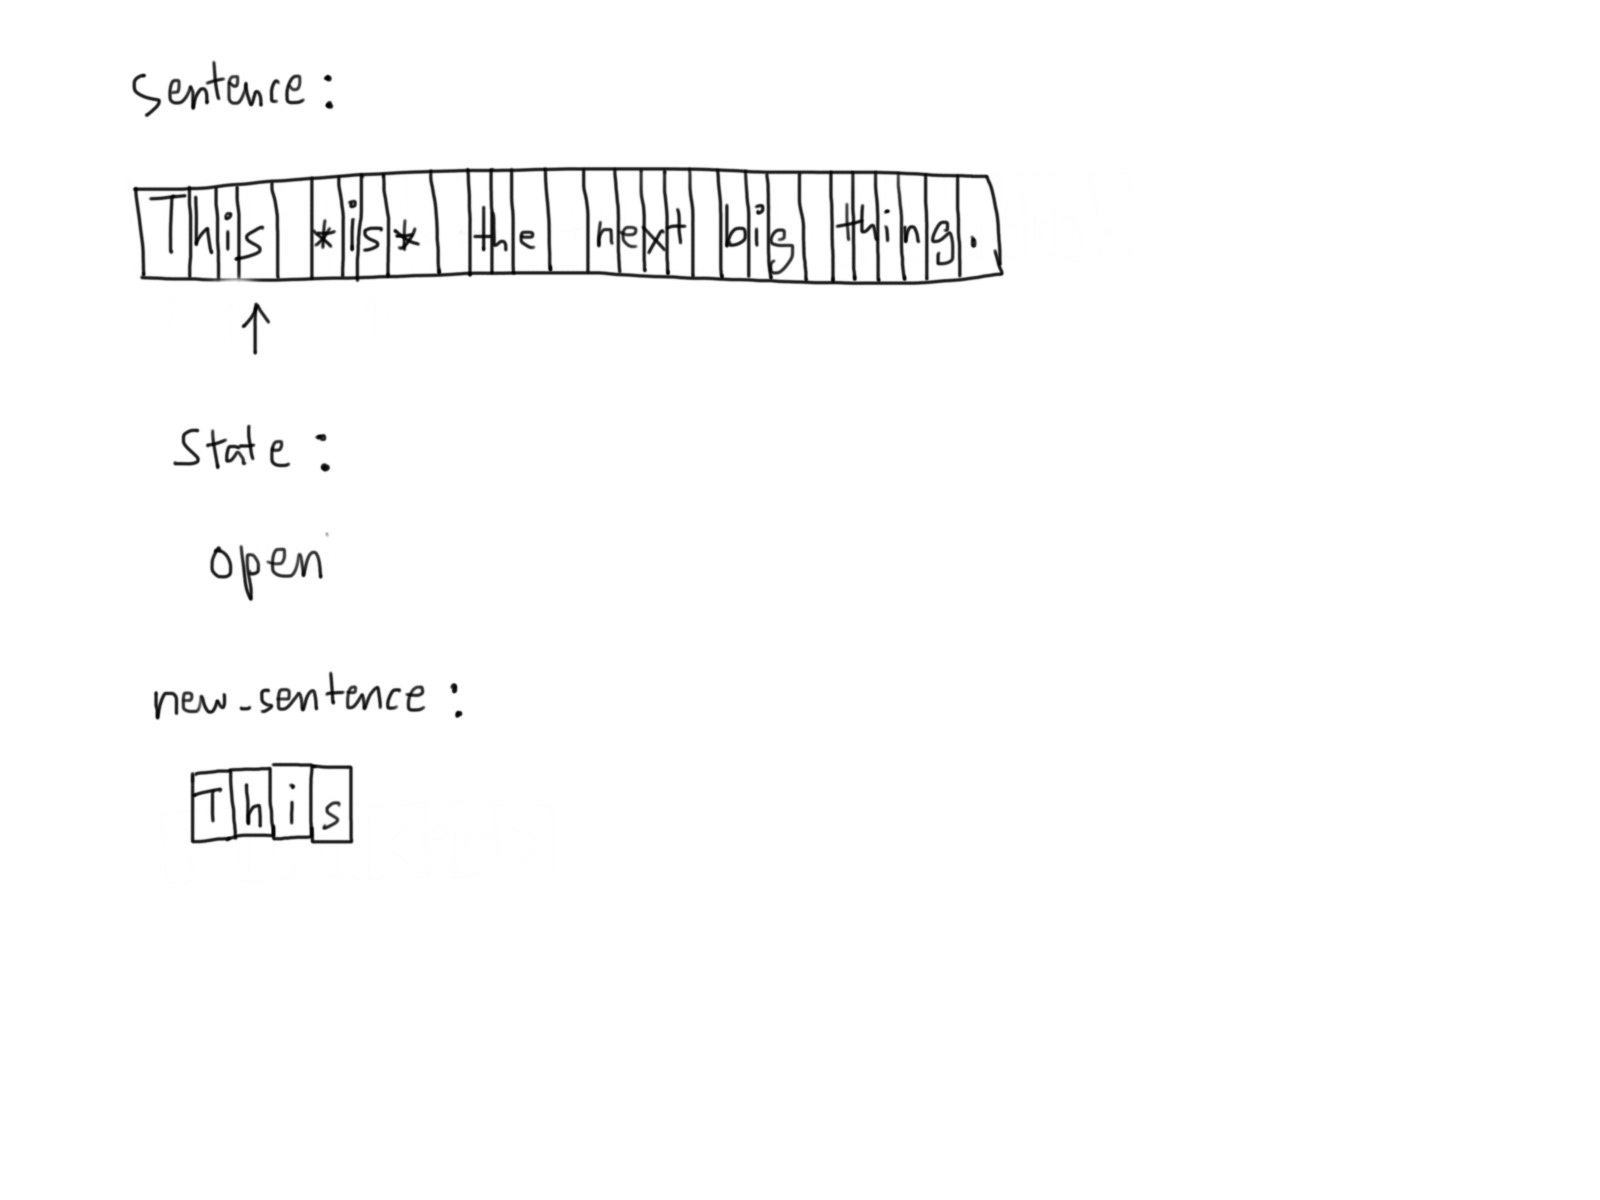 sentence:
This *is* the next big thing.
↑
State:
open
new_sentence:
This